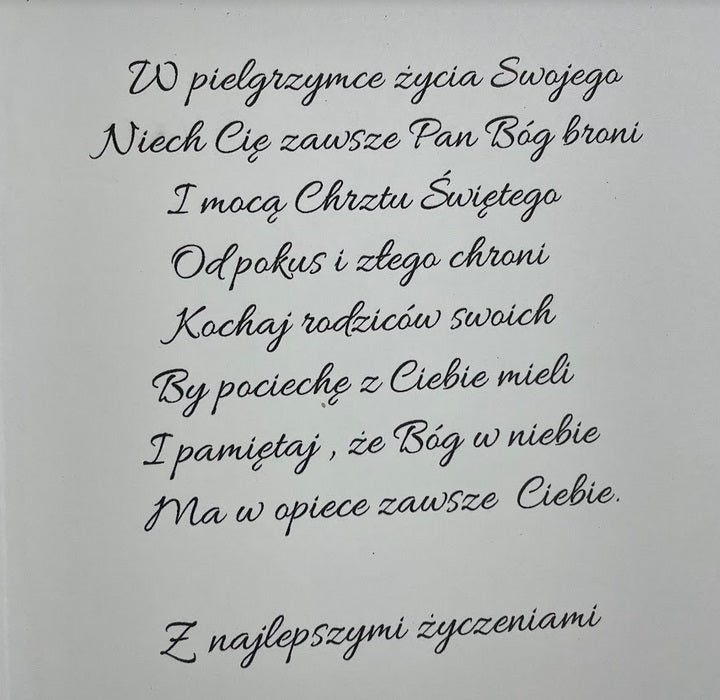 W pielgrzymce życia Swojego
Niech Cię zawsze Pan Bóg broni
I mocą Chrztu Świętego
Od pokus i złego chroni
Kochaj rodziców swoich
By pociechę z Ciebie mieli
I pamiętaj , że Bóg w niebie
Ma w opiece zawsze Ciebie.
Z najlepszymi życzeniami